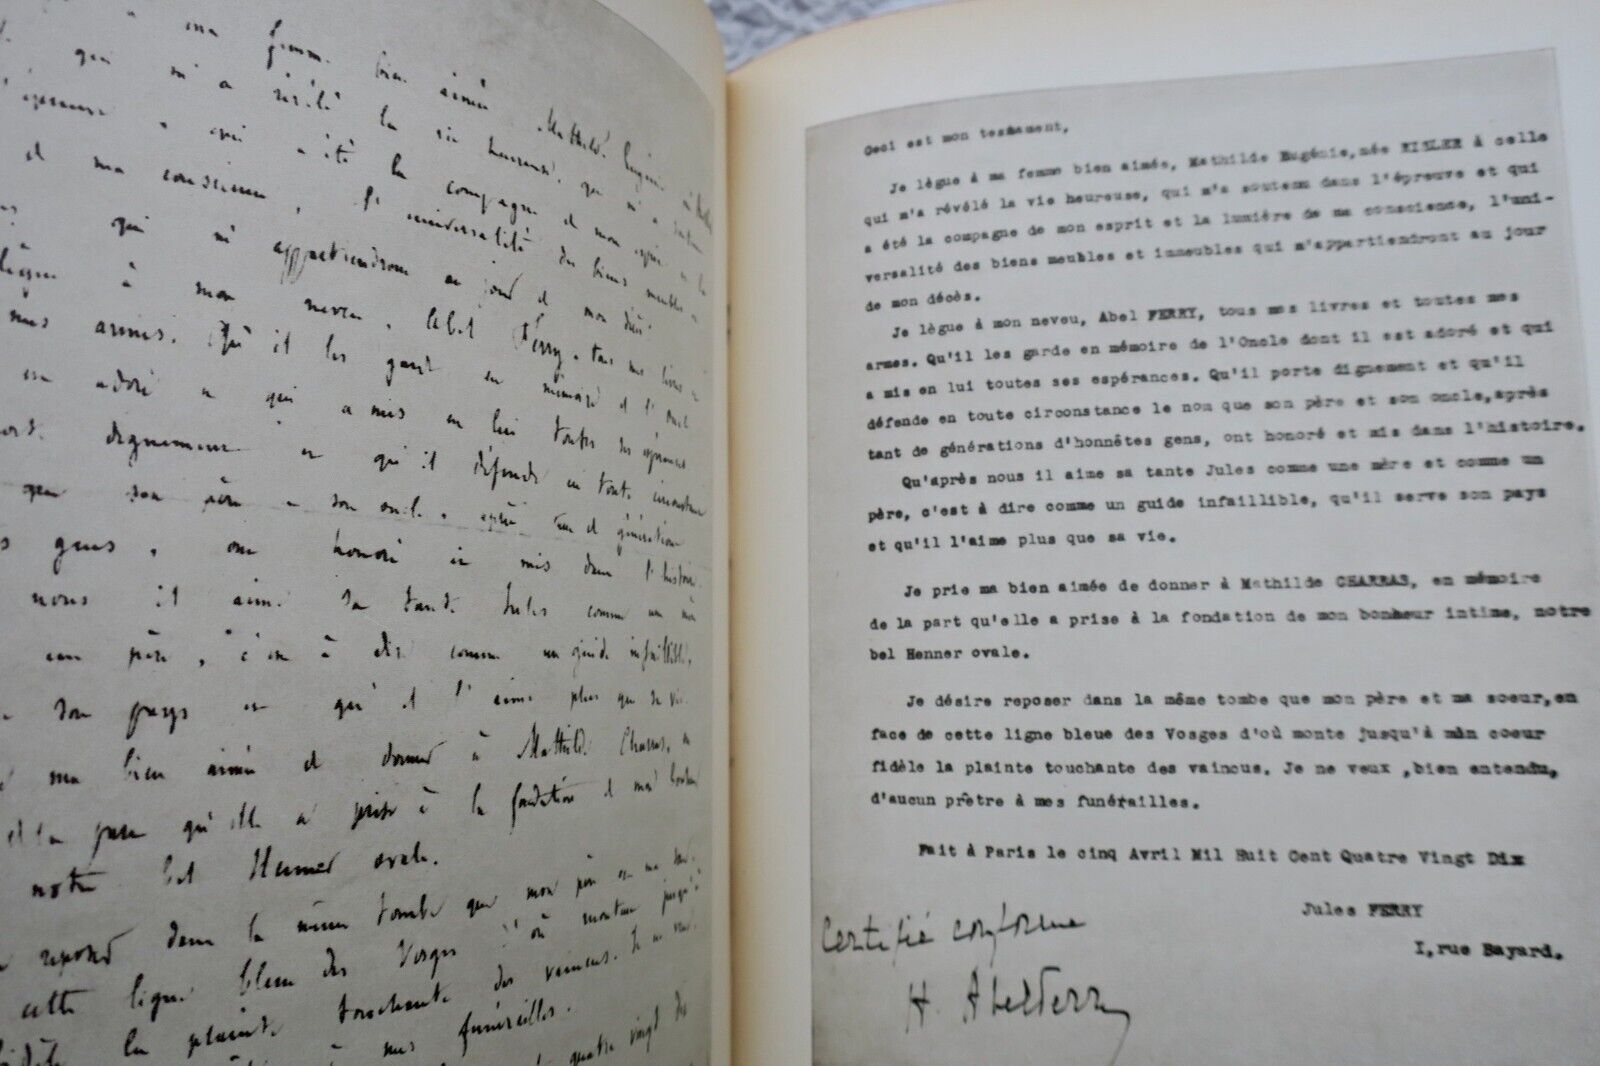 ma femme bien aimée Mathilde Eugénie
qui m'a révélé la vie heureuse, qui m'a soutenu
qui a été la compagne de mon esprit et la
ma conscience, l'universalité des biens meubles
qui m'appartiendront au jour de mon décès
à mon neveu, Abel Ferry, tous mes livres
mes armes. Qu'il les garde en mémoire de l'Oncle
est adoré et qui a mis en lui toutes ses espérances
dignement et qu'il défende en toute circonstance
que son père et son oncle, après tant de générations
gens, ont honoré et mis dans l'histoire.
nous il aime sa tante Jules comme une mère
un père, c'est à dire comme un guide infaillible,
son pays et qu'il l'aime plus que sa vie.
ma bien aimée de donner à Mathilde Charras, en
de la part qu'elle a prise à la fondation de mon bonheur
notre bel Henner ovale.
reposer dans la même tombe que mon père et ma sœur
cette ligne bleue des Vosges d'où monte jusqu'à
la plainte touchante des vaincus. Je ne veux
à mes funérailles.
quatre vingt dix
Ceci est mon testament,
Je lègue à ma femme bien aimée, Mathilde Eugénie, née RISLER à celle
qui m'a révélé la vie heureuse, qui m'a soutenu dans l'épreuve et qui
a été la compagne de mon esprit et la lumière de ma conscience, l'uni-
versalité des biens meubles et immeubles qui m'appartiendront au jour
de mon décès.
Je lègue à mon neveu, Abel FERRY, tous mes livres et toutes mes
armes. Qu'il les garde en mémoire de l'Oncle dont il est adoré et qui
a mis en lui toutes ses espérances. Qu'il porte dignement et qu'il
défende en toute circonstance le nom que son père et son oncle, après
tant de générations d'honnêtes gens, ont honoré et mis dans l'histoire.
Qu'après nous il aime sa tante Jules comme une mère et comme un
père, c'est à dire comme un guide infaillible, qu'il serve son pays
et qu'il l'aime plus que sa vie.
Je prie ma bien aimée de donner à Mathilde CHARRAS, en mémoire
de la part qu'elle a prise à la fondation de mon bonheur intime, notre
bel Henner ovale.
Je désire reposer dans la même tombe que mon père et ma soeur, en
face de cette ligne bleue des Vosges d'où monte jusqu'à mon coeur
fidèle la plainte touchante des vaincus. Je ne veux ,bien entendu,
d'aucun prêtre à mes funérailles.
Fait à Paris le cinq Avril Mil Huit Cent Quatre Vingt Dix
Jules FERRY
I, rue Bayard.
Certifié conforme
H. Abel Ferry